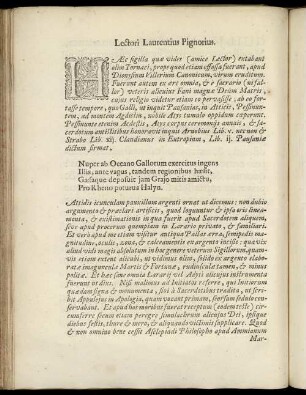 Lectori Laurentius Pignorius.
HÆc sigilla quæ vides (amice Lector) extabant
olim Tornaci, prope quod etiam effossa fuerunt, apud
Dionysium Villerium Canonicum, virum eruditum.
Fuerunt autem ex ære omnia, & è sacrario (ni fal-
lor) veteris alicuius Fani magnæ Deûm Matris,
cujus religio videtur etiam eo pervasisse, ab eo for-
tasse tempore, quo Galli, ut inquit Pausanias, in Atticis, Pessinun-
tem, ad montem Agdistin, nobile Atys tumulo oppidum ceperunt.
Pessinunte etenim Acdestis, Atys corpus ceremoniis annuis, & sa-
cerdotum antistitibus honoravit inquit Arnobius Lib. v. necnon &
Strabo Lib. xij. Claudianus in Eutropium, Lib. ij. Pausaniæ
dictum firmat.
Nuper ab Oceano Gallorum exercitus ingens
Illis, ante vagus, tandem regionibus hæsit,
Gæsaque deposuit jam Grajo mitis amictu,
Pro Rheno poturus Halyn.
Attidis icunculam pausillum argenti ornat ut dicemus; non dubio
argumento & præclari artificii, quod loquuntur & ista orâ imcu-
menta; & existimationis qua fuerit apud Sacerdotem aliquem,
sive apud procerum quempiam in Larario privato, & familiari.
Apud me verò est etiam visitur antiqua Pallas ærea, semipedis ma-
gnitudine, oculis, & zona eleganter ex argento incisis: quæ vix
aliud vidi magis absolutum in hoc genere veterum Sigillorum, quam-
vis etiam extent alicubi, ut vidimus olim, solido ex argento elabora-
tæ imagunculæ Martis & Fortunæ, ridiculæ tamen, & minus
politæ. Et hæc sane omnia Lararij vel alicujus instrumenta
fuerunt ut dixi. Nisi malimus ad Initiatos referre, qui Initiorum
quædam signa & monumenta, sibi à Sacerdotibus tradita, ut scri-
bit Apulejus in Apologia, quam vocant primam, seorsum sedulò con-
servabant. Et apud nos moribus fuerat receptum (eodem teste) cir-
cumferre secum etiam peregre simulachrum alicujus Dei, ipsique
diebus festis, thure & mero, & aliquando victimis supplicare. Quod
& non omnino bene cessit Asclepiadi Philosopho apud Ammianum
Mar-